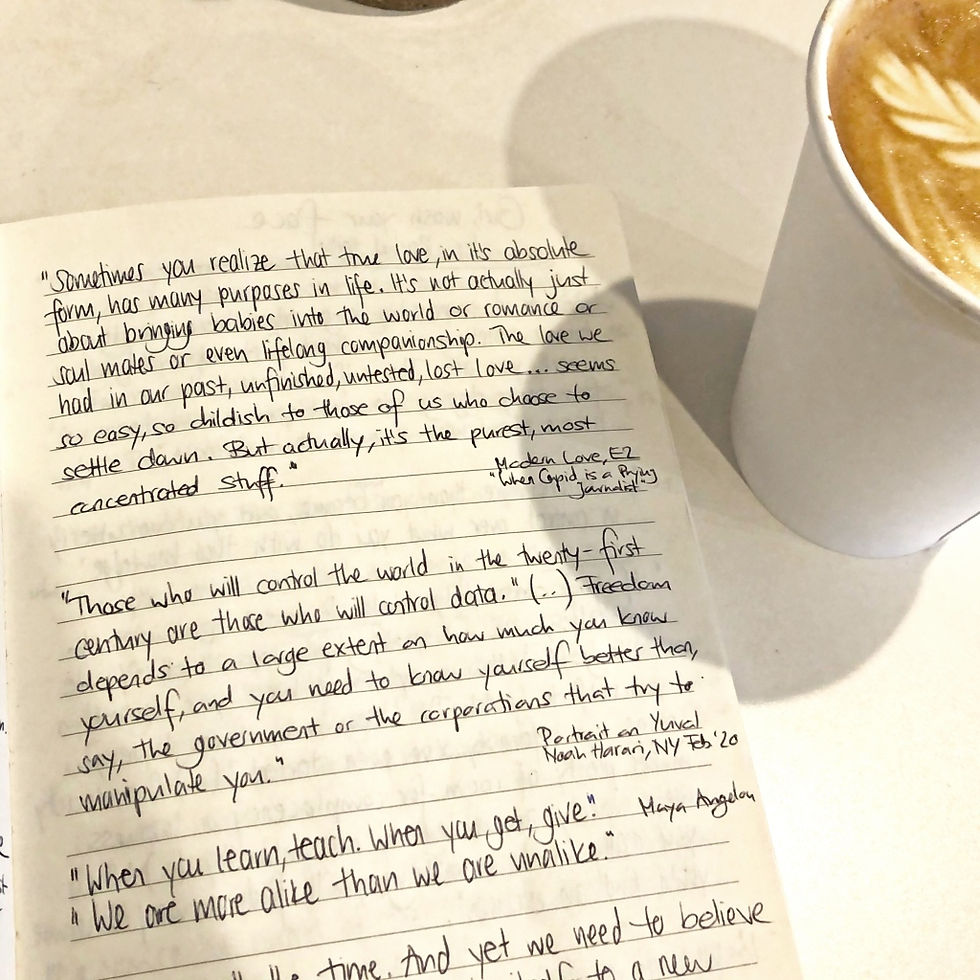 "Sometimes you realize that true love, in it's absolute
form, has many purposes in life. It's not actually just
about bringing babies into the world or romance or
soul mates or even lifelong companionship. The love we
had in our past, unfinished, untested, lost love... seems
so easy, so childish to those of us who choose to
settle down. But actually, it's the purest, most
concentrated stuff."
Modern Love, E2
"When Cupid is a Prying
Journalist"
"Those who will control the world in the twenty-first
century are those who will control data." (..) Freedom
depends to a large extent on how much you know
yourself, and you need to know yourself better than,
say, the government or the corporations that try to
manipulate you."
Portrait on Yuval
Noah Harari, NY Feb '20
"When you learn, teach. When you get, give." Maya Angelou
"We are more alike than we are unalike."
time. And yet we need to believe
to a new